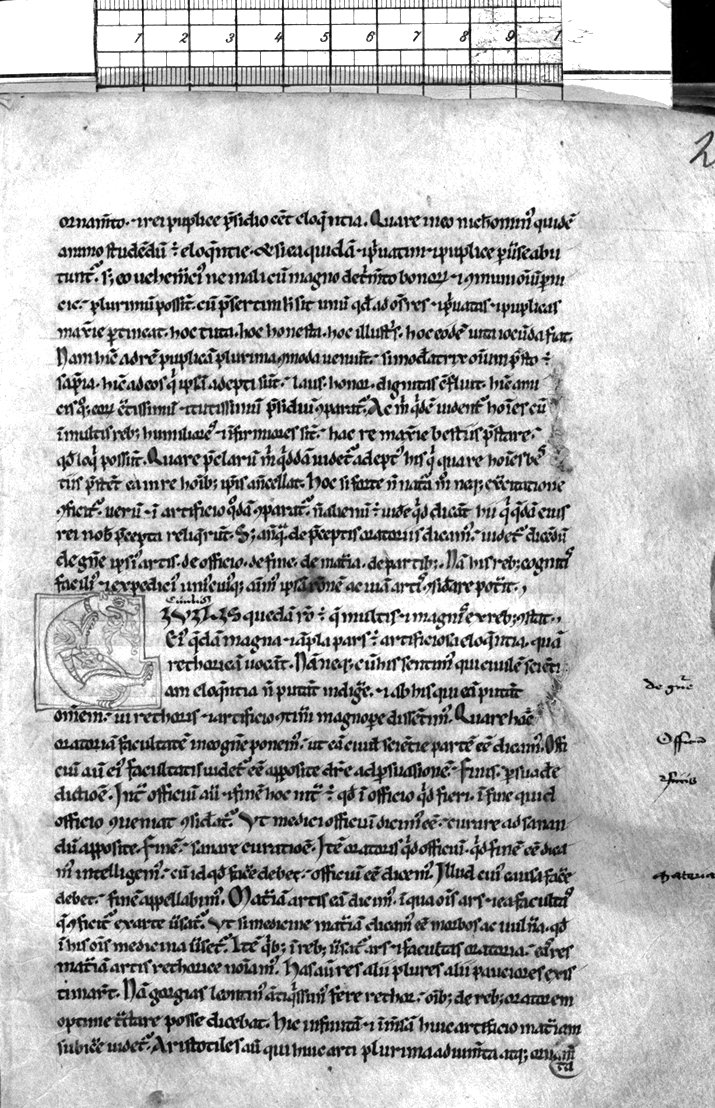 1 2 3 4 5 6 7 8 9 1
2
ornam̄to · ⁊ rei puplice p̄sidio eēt eloq̄ntia. Quare in eo michi omnin᷒ quidē
animo studēdū ÷ eloq̄ntie · & si ea quidā ⁊ p̱uatim ⁊ puplice puse abu
tunt᷑ · s; eo uehem̄ci᷒ ne mali cū magno det̄m̄to bonoꝝ ⁊ ꝯmuni oīuꝫ pni
cie · plurimū possīt · cū p̄sertim h̄ sit unū qd̄ ad oēs res ⁊ p̱uatas ⁊ puplicas
maxīe p̱tineat · hoc tuta · hoc honesta · hoc illust̄s · hoc eodē uita iocūda fiat.
Nam hīc ad rē puplicā plurima ꝯmoda veniūt · si mod̄atrix oīum p̄sto ÷
sapīa · hīc ad eos q̇ ip̄am adepti sūt · laus · honor · dignitas ꝯfluit · hīc ami
cis qꝫ eoꝝ c̄tissimū ⁊ tutissimū p̄sidiū ꝯparat᷑. Ac m̄ q̇dē uident᷑ hoīes cū
ī multis reb; humiliores ⁊ īfirmiores sīt · hac re maxīe bestiis p̄stare ·
qd̄ loq̇ possūt. Quare p̄clarū m̄ q̇ddā uidet᷑ adept᷒ his q̇ qua re hoīes be
tiis p̄stēt ea in re hoīb; ip̄is ān̄cellat. Hoc si forte n̄ nat̄a m̄ neq; ex̄citatione
ꝯficit᷑ uerū ⁊ ī artificio q̇dā ꝯparat᷑ · n̄ alienū ÷ uid̄e q̇d dicāt hii q̇ q̇dā eius
rei nob̄ p̄cepta reliq̄rūt. S; anq̄ de p̄ceptis oratoriis dicam᷒ · uidet᷑ dicēdū
de gn̄e ip̄i᷒ artis · de officio · de fine · de mat̄ia · de partib; · Nā his reb; cognitis
facili᷒ ⁊ expedici᷒ uni᷒cui᷒q; aīm᷒ ip̄am rōnē ac uiā artis ꝯsid̄are pot̄it ·
Ciuilis
CIVILIS quedā rō ÷ q̄ multis ⁊ magnis ex reb; ꝯstat ·
Ei᷒ q̄dā magna ⁊ āpla pars ÷ artificiosa eloq̄ntia · quā
rethoricā uocant. Nā neq; cū his sentim᷒ qui ciuilē sciēti
am eloq̄ntia n̄ putāt indiḡe · ⁊ ab his qui eā putāt
omēm ui rethoris ⁊ artificio ꝯtin̄i magnop̱e dissētim᷒. Quare hāc
oratoriā facultatē in eo gn̄e ponem᷒ · ut eā ciuil̄ sciētie partē eē dicam᷒. Offi
ciū aū ei᷒ facultatis uidet᷑ eē apposite dic̄e ad p̱suasionē · Finis · p̱suad̄e
dictiōe. Int̄ officiū aū ⁊ finē hoc int̄ ÷ qd̄ ī officio q̇d fieri · ī fine quid
officio ꝯueniat ꝯsid̄at᷑. Vt medici officiū dicim᷒ eē · curare ad sanan
dū apposite · Finē · sanare curatiōe. Itē oratoris q̇d officiū · q̇d finē eē dica
m᷒ intelligem᷒ · cū id qd̄ fac̄e debet · officiū eē dicem᷒. Illud cui᷒ causa fac̄e
debet · finē appellabim᷒. Mat̄iā artis eā dicim᷒ · ī qua oīs ars ⁊ ea facultas
q̄ ꝯficit᷑ ex arte u̇sat᷑. Vt si medicine mat̄iā dicam᷒ eē morbos ac uuln̄a · qd̄
ī his oīs medicina u̇set᷑. Itē q̇b; ī reb; u̇sat᷑ ars ⁊ facultas oratoria · eas res
mat̄iā artis rethorice noīam᷒. Has aū res alii plures alii pauciores exis
timar̄t. Nā gorgias leontin᷒ ātiq̇ssim᷒ fere rethor · oīb; de reb; oratorem
optime t̄ctare posse dicebat. Hic infinitā ⁊ īm̄sā huic artificio mat̄iam
subic̄e uidet᷑. Aristotiles aū qui huic arti plurima adiumēta atq; ornam̄
ta
de gn̄e
Officiū
finis
Materia